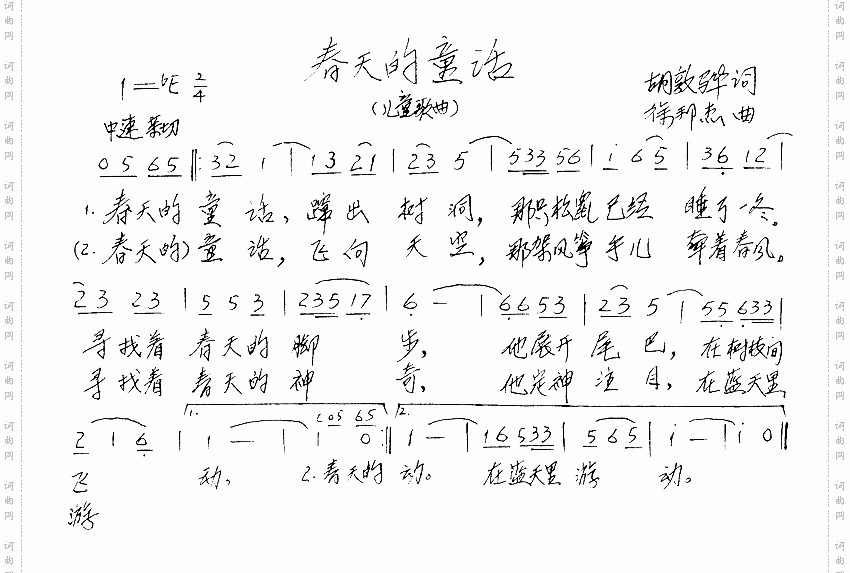 春天的童话
1=♭E 2/4
(儿童歌曲)
胡敦骅 词
徐邦杰 曲
中速 亲切
0 5 6 5 ‖: 3 2 1 | 1 3 2 1 | 2 3 5 | 5 3 3 5 6 | i 6 5 | 3 6 1 2 |
1. 春天的 童 话, 蹿 出 树 洞, 那只松鼠 已经 睡了一冬。
(2. 春天的) 童 话, 飞 向 天 空, 那架风筝 手儿 牵着春风。
2 3 2 3 | 5 5 3 | 2 3 5 1 7 | 6 — | 6 6 5 3 | 2 3 5 | 5 5 6 3 3 |
寻找着 春天的 脚 步, 他展开 尾 巴, 在树枝间
寻找着 春天的 神 奇, 他定神 注 目, 在蓝天里
1. 0 5 6 5 2.
2 1 6 | 1 — | 1 0 :‖ 1 — | 1 6 5 3 3 | 5 6 5 | i — | i 0 ‖
飞 动、 2. 春天的 动。 在蓝天里 游 动。
游
词曲网